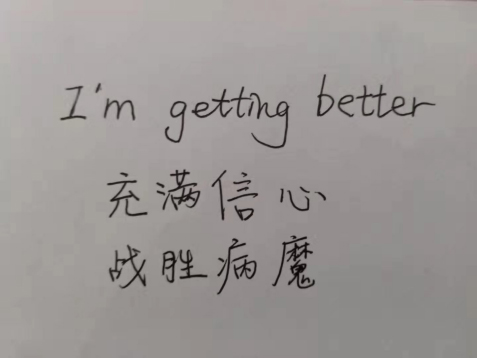 I'm getting better
充满信心
战胜病魔